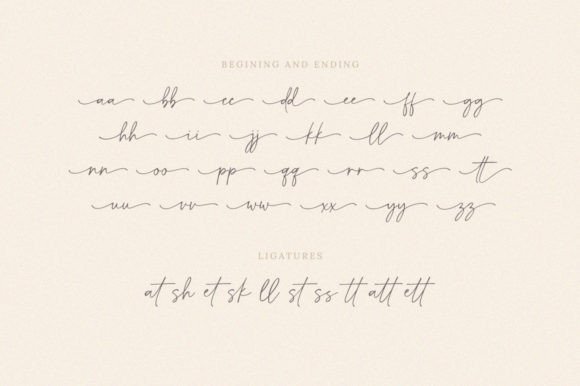 BEGINING AND ENDING
aa bb cc dd ee ff gg
hh ii jj kk ll mm
nn oo pp qq rr ss tt
uu vv ww xx yy zz
LIGATURES
at sh et sk ll st ss tt att ett